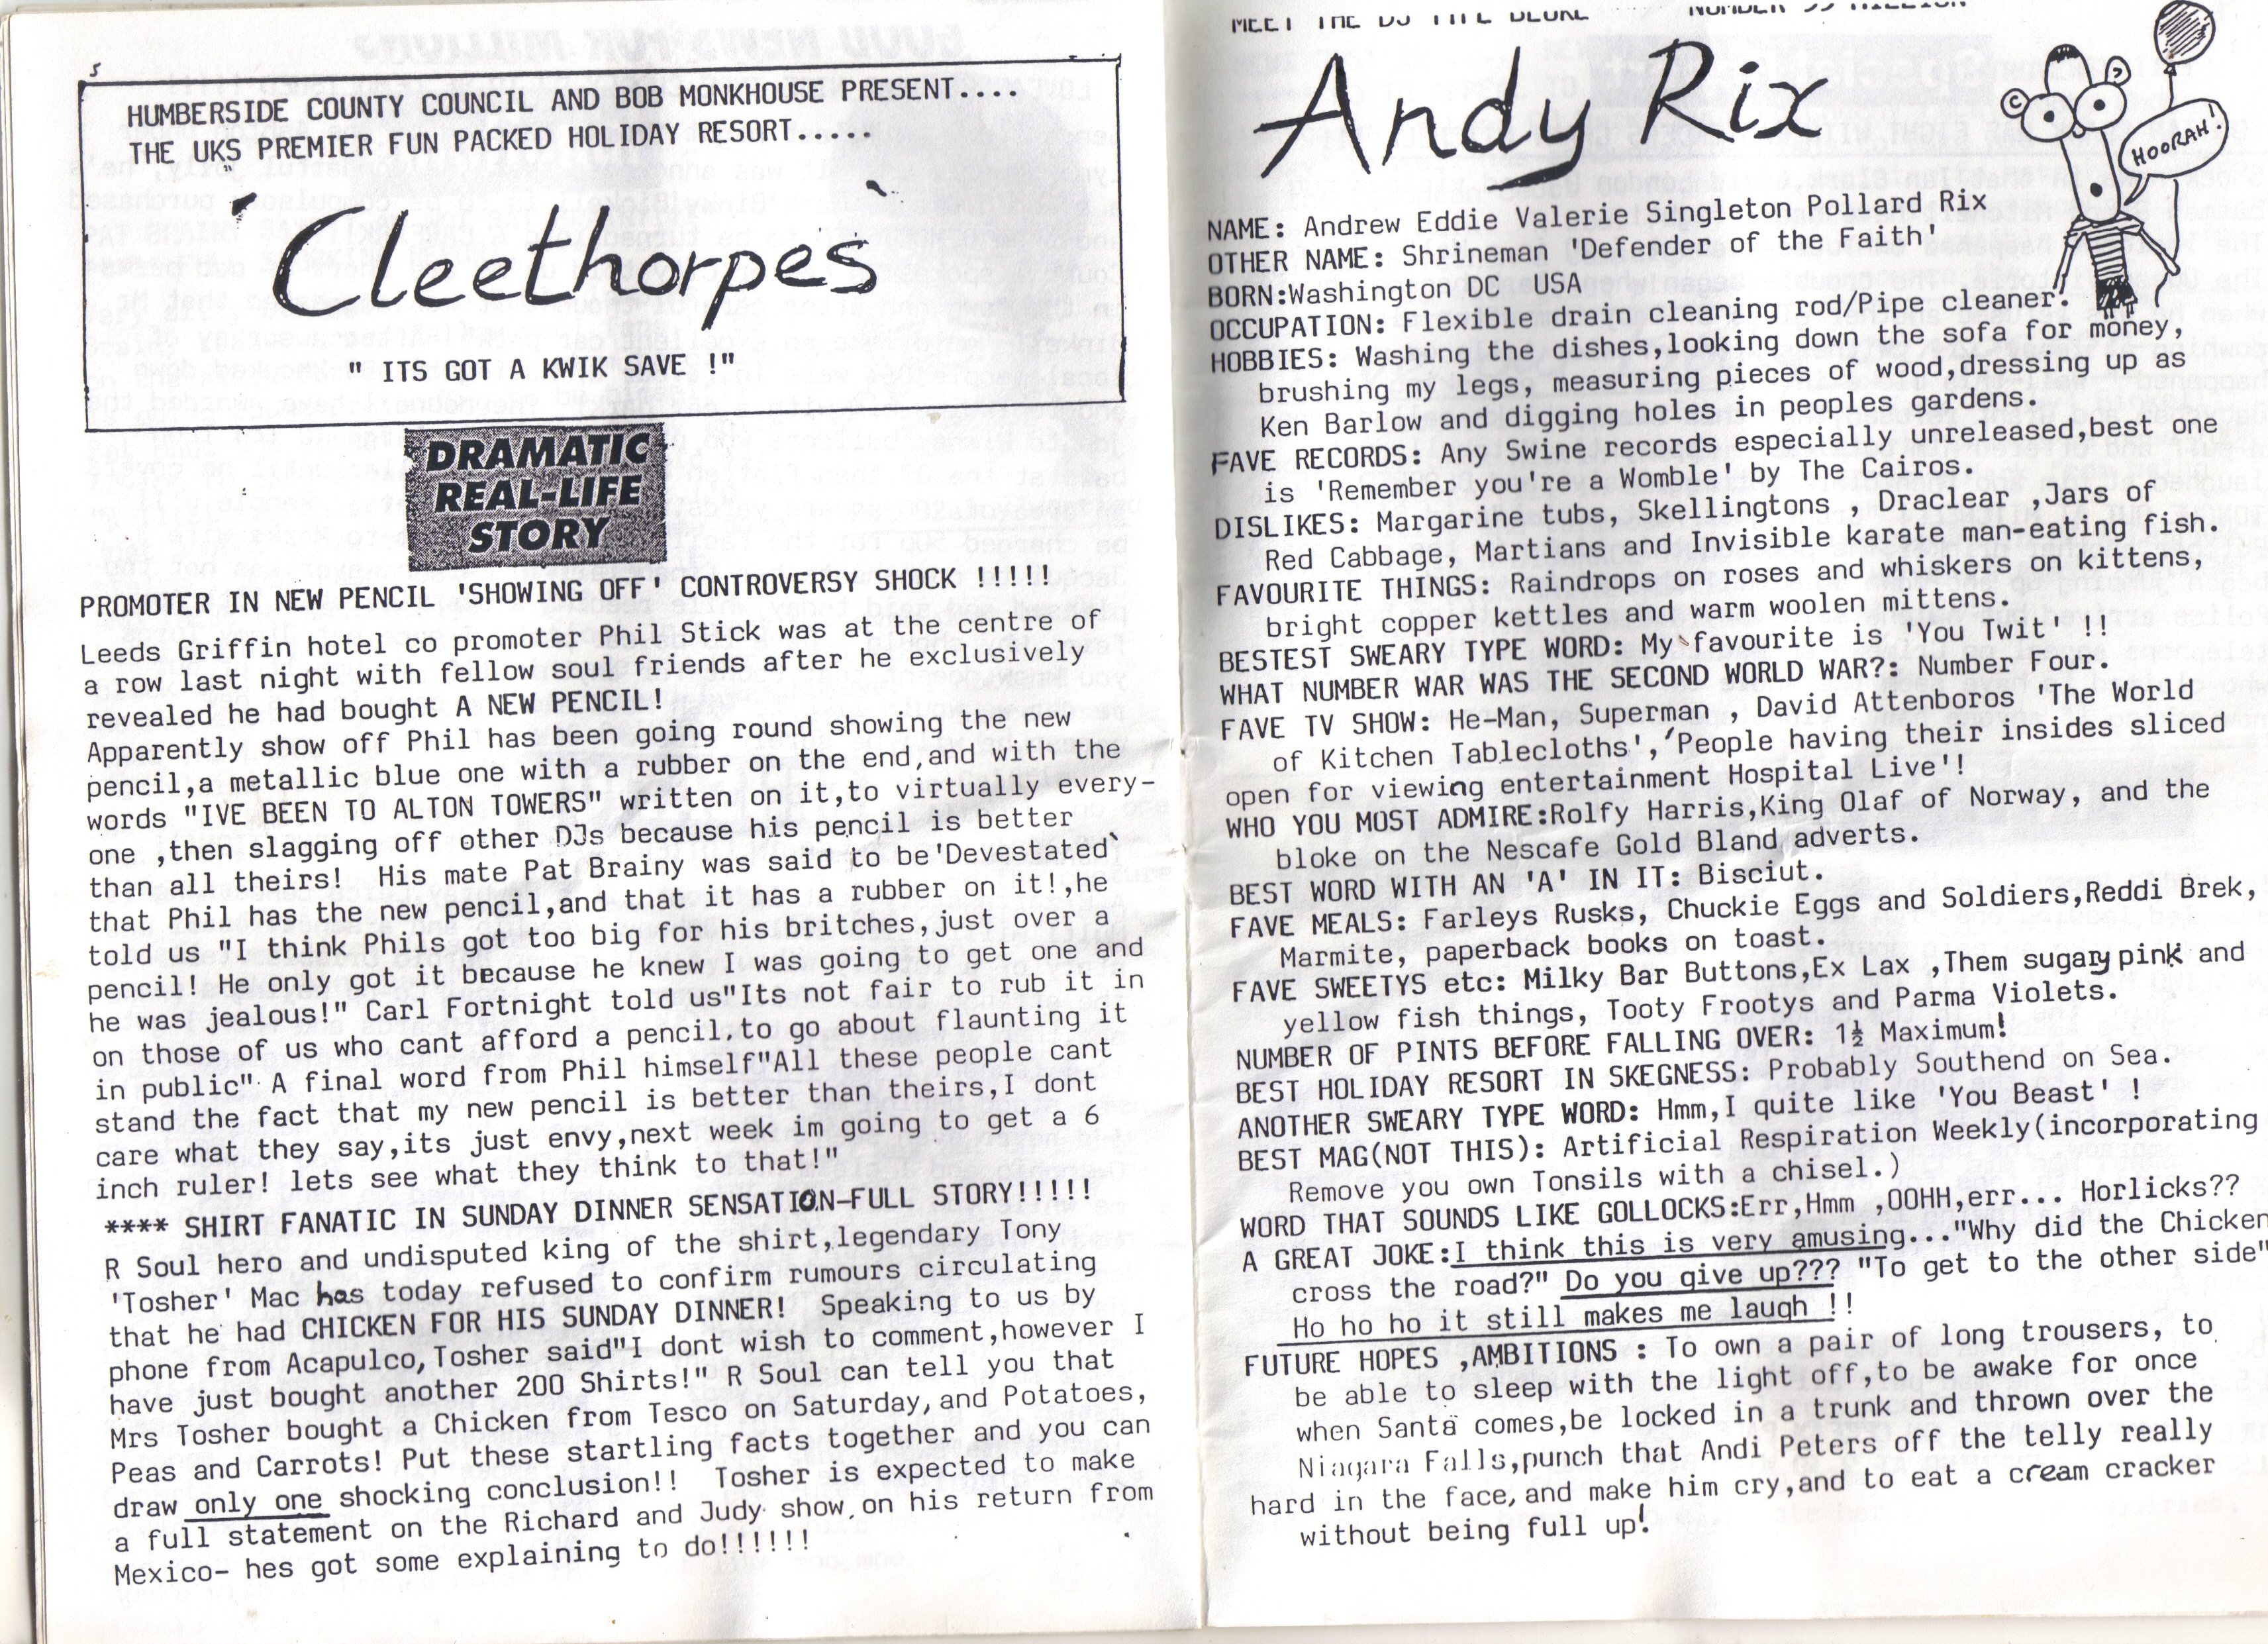 5
HUMBERSIDE COUNTY COUNCIL AND BOB MONKHOUSE PRESENT....
THE UKS PREMIER FUN PACKED HOLIDAY RESORT.....
'Cleethorpes'
" ITS GOT A KWIK SAVE !"
DRAMATIC
REAL-LIFE
STORY
PROMOTER IN NEW PENCIL 'SHOWING OFF' CONTROVERSY SHOCK !!!!!
Leeds Griffin hotel co promoter Phil Stick was at the centre of
a row last night with fellow soul friends after he exclusively
revealed he had bought A NEW PENCIL!
Apparently show off Phil has been going round showing the new
pencil,a metallic blue one with a rubber on the end,and with the
words "IVE BEEN TO ALTON TOWERS" written on it,to virtually every-
one ,then slagging off other DJs because his pencil is better
than all theirs! His mate Pat Brainy was said to be'Devestated`
that Phil has the new pencil,and that it has a rubber on it!,he
told us "I think Phils got too big for his britches,just over a
pencil! He only got it because he knew I was going to get one and
he was jealous!" Carl Fortnight told us"Its not fair to rub it in
on those of us who cant afford a pencil,to go about flaunting it
in public" A final word from Phil himself"All these people cant
stand the fact that my new pencil is better than theirs,I dont
care what they say,its just envy,next week im going to get a 6
inch ruler! lets see what they think to that!"
**** SHIRT FANATIC IN SUNDAY DINNER SENSATION-FULL STORY!!!!!
R Soul hero and undisputed king of the shirt,legendary Tony
'Tosher' Mac has today refused to confirm rumours circulating
that he had CHICKEN FOR HIS SUNDAY DINNER! Speaking to us by
phone from Acapulco,Tosher said"I dont wish to comment,however I
have just bought another 200 Shirts!" R Soul can tell you that
Mrs Tosher bought a Chicken from Tesco on Saturday,and Potatoes,
Peas and Carrots! Put these startling facts together and you can
draw only one shocking conclusion!! Tosher is expected to make
a full statement on the Richard and Judy show on his return from
Mexico- hes got some explaining to do!!!!!!
MEET THE DJ TYPE BLOKE NUMBER 55 MILLION
Andy Rix
HOORAH!
NAME: Andrew Eddie Valerie Singleton Pollard Rix
OTHER NAME: Shrineman 'Defender of the Faith'
BORN:Washington DC USA
OCCUPATION: Flexible drain cleaning rod/Pipe cleaner.
HOBBIES: Washing the dishes,looking down the sofa for money,
brushing my legs, measuring pieces of wood,dressing up as
Ken Barlow and digging holes in peoples gardens.
FAVE RECORDS: Any Swine records especially unreleased,best one
is 'Remember you're a Womble' by The Cairos.
DISLIKES: Margarine tubs, Skellingtons , Draclear ,Jars of
Red Cabbage, Martians and Invisible karate man-eating fish.
FAVOURITE THINGS: Raindrops on roses and whiskers on kittens,
bright copper kettles and warm woolen mittens.
BESTEST SWEARY TYPE WORD: My favourite is 'You Twit' !!
WHAT NUMBER WAR WAS THE SECOND WORLD WAR?: Number Four.
FAVE TV SHOW: He-Man, Superman , David Attenboros 'The World
of Kitchen Tablecloths','People having their insides sliced
open for viewing entertainment Hospital Live'!
WHO YOU MOST ADMIRE:Rolfy Harris,King Olaf of Norway, and the
bloke on the Nescafe Gold Bland adverts.
BEST WORD WITH AN 'A' IN IT: Bisciut.
FAVE MEALS: Farleys Rusks, Chuckie Eggs and Soldiers,Reddi Brek,
Marmite, paperback books on toast.
FAVE SWEETYS etc: Milky Bar Buttons,Ex Lax ,Them sugary pink and
yellow fish things, Tooty Frootys and Parma Violets.
NUMBER OF PINTS BEFORE FALLING OVER: 1½ Maximum!
BEST HOLIDAY RESORT IN SKEGNESS: Probably Southend on Sea.
ANOTHER SWEARY TYPE WORD: Hmm,I quite like 'You Beast' !
BEST MAG(NOT THIS): Artificial Respiration Weekly(incorporating
Remove you own Tonsils with a chisel.)
WORD THAT SOUNDS LIKE GOLLOCKS:Err,Hmm ,OOHH,err... Horlicks??
A GREAT JOKE:I think this is very amusing..."Why did the Chicken
cross the road?" Do you give up??? "To get to the other side"
Ho ho ho it still makes me laugh !!
FUTURE HOPES ,AMBITIONS : To own a pair of long trousers, to
be able to sleep with the light off,to be awake for once
when Santa comes,be locked in a trunk and thrown over the
Niagara Falls,punch that Andi Peters off the telly really
hard in the face,and make him cry,and to eat a cream cracker
without being full up!